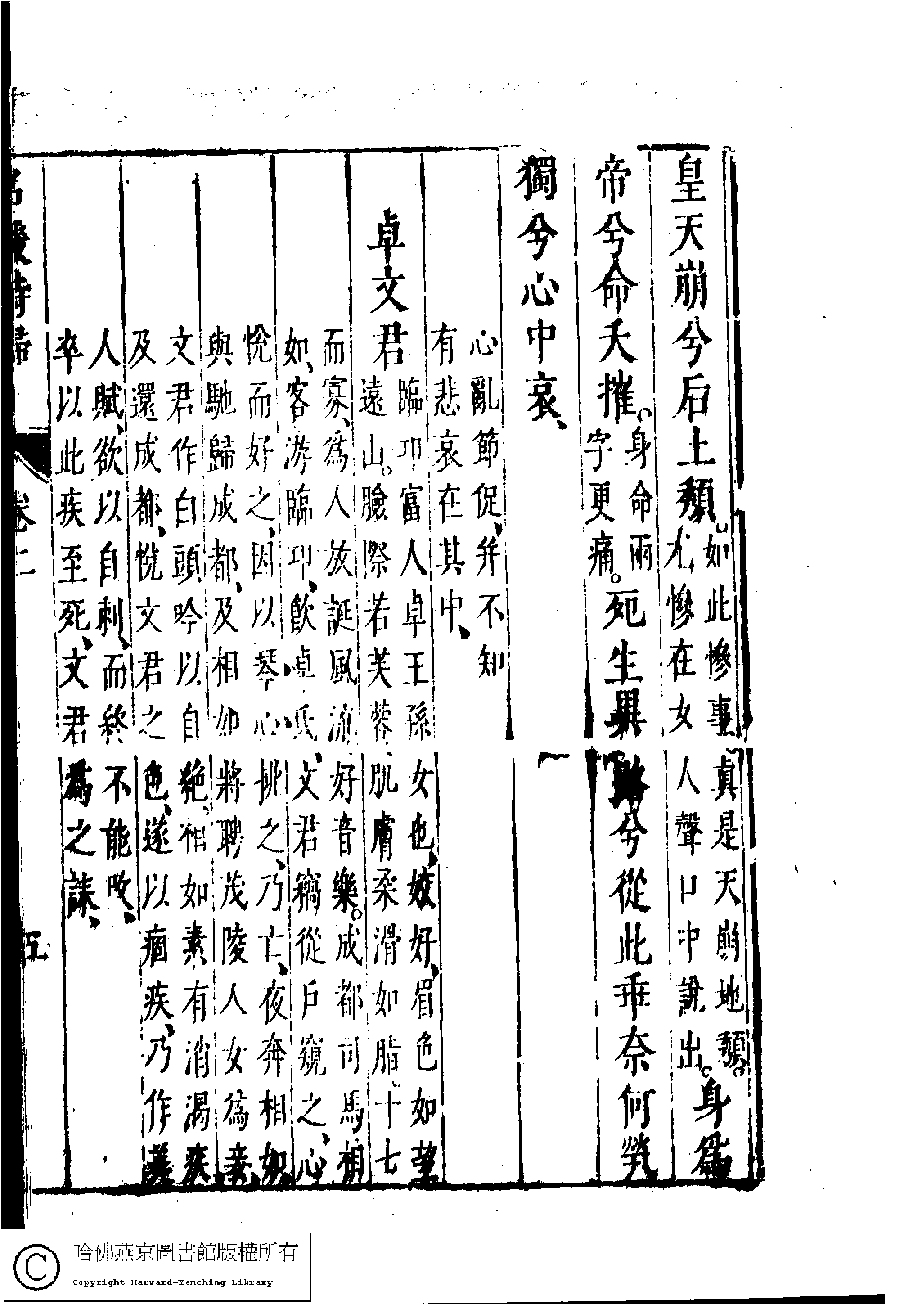 皇天崩兮后土頽。如此慘事真是天崩地頽。
尤慘在女人聲口中說出。身爲
帝兮命夭摧。身命兩
字更痛。死生異路兮從此乖奈何煢
獨兮心中哀、
心亂節促、并不知
有悲哀在其中、
卓文君
臨邛富人卓王孫女也、姣好、眉色如望
遠山。臉際若芙蓉、肌膚柔滑如脂、十七
而寡、爲人放誕風流、好音樂。成都司馬相
如、客游臨邛、飲卓氏、文君竊從戶窺之、心
悅而好之、因以琴心挑之、乃亡、夜奔相如、
與馳歸成都、及相如將聘茂陵人女爲妾、
文君作白頭吟以自絶、相如素有消渴疾
及還成都、悅文君之色、遂以痼疾、乃作美
人賦、欲以自刺、而終不能改、
卒以此疾至死、文君爲之誄、
名媛詩歸
卷二
五
哈佛燕京圖書館版權所有
Copyright Harvard-Yenching Library